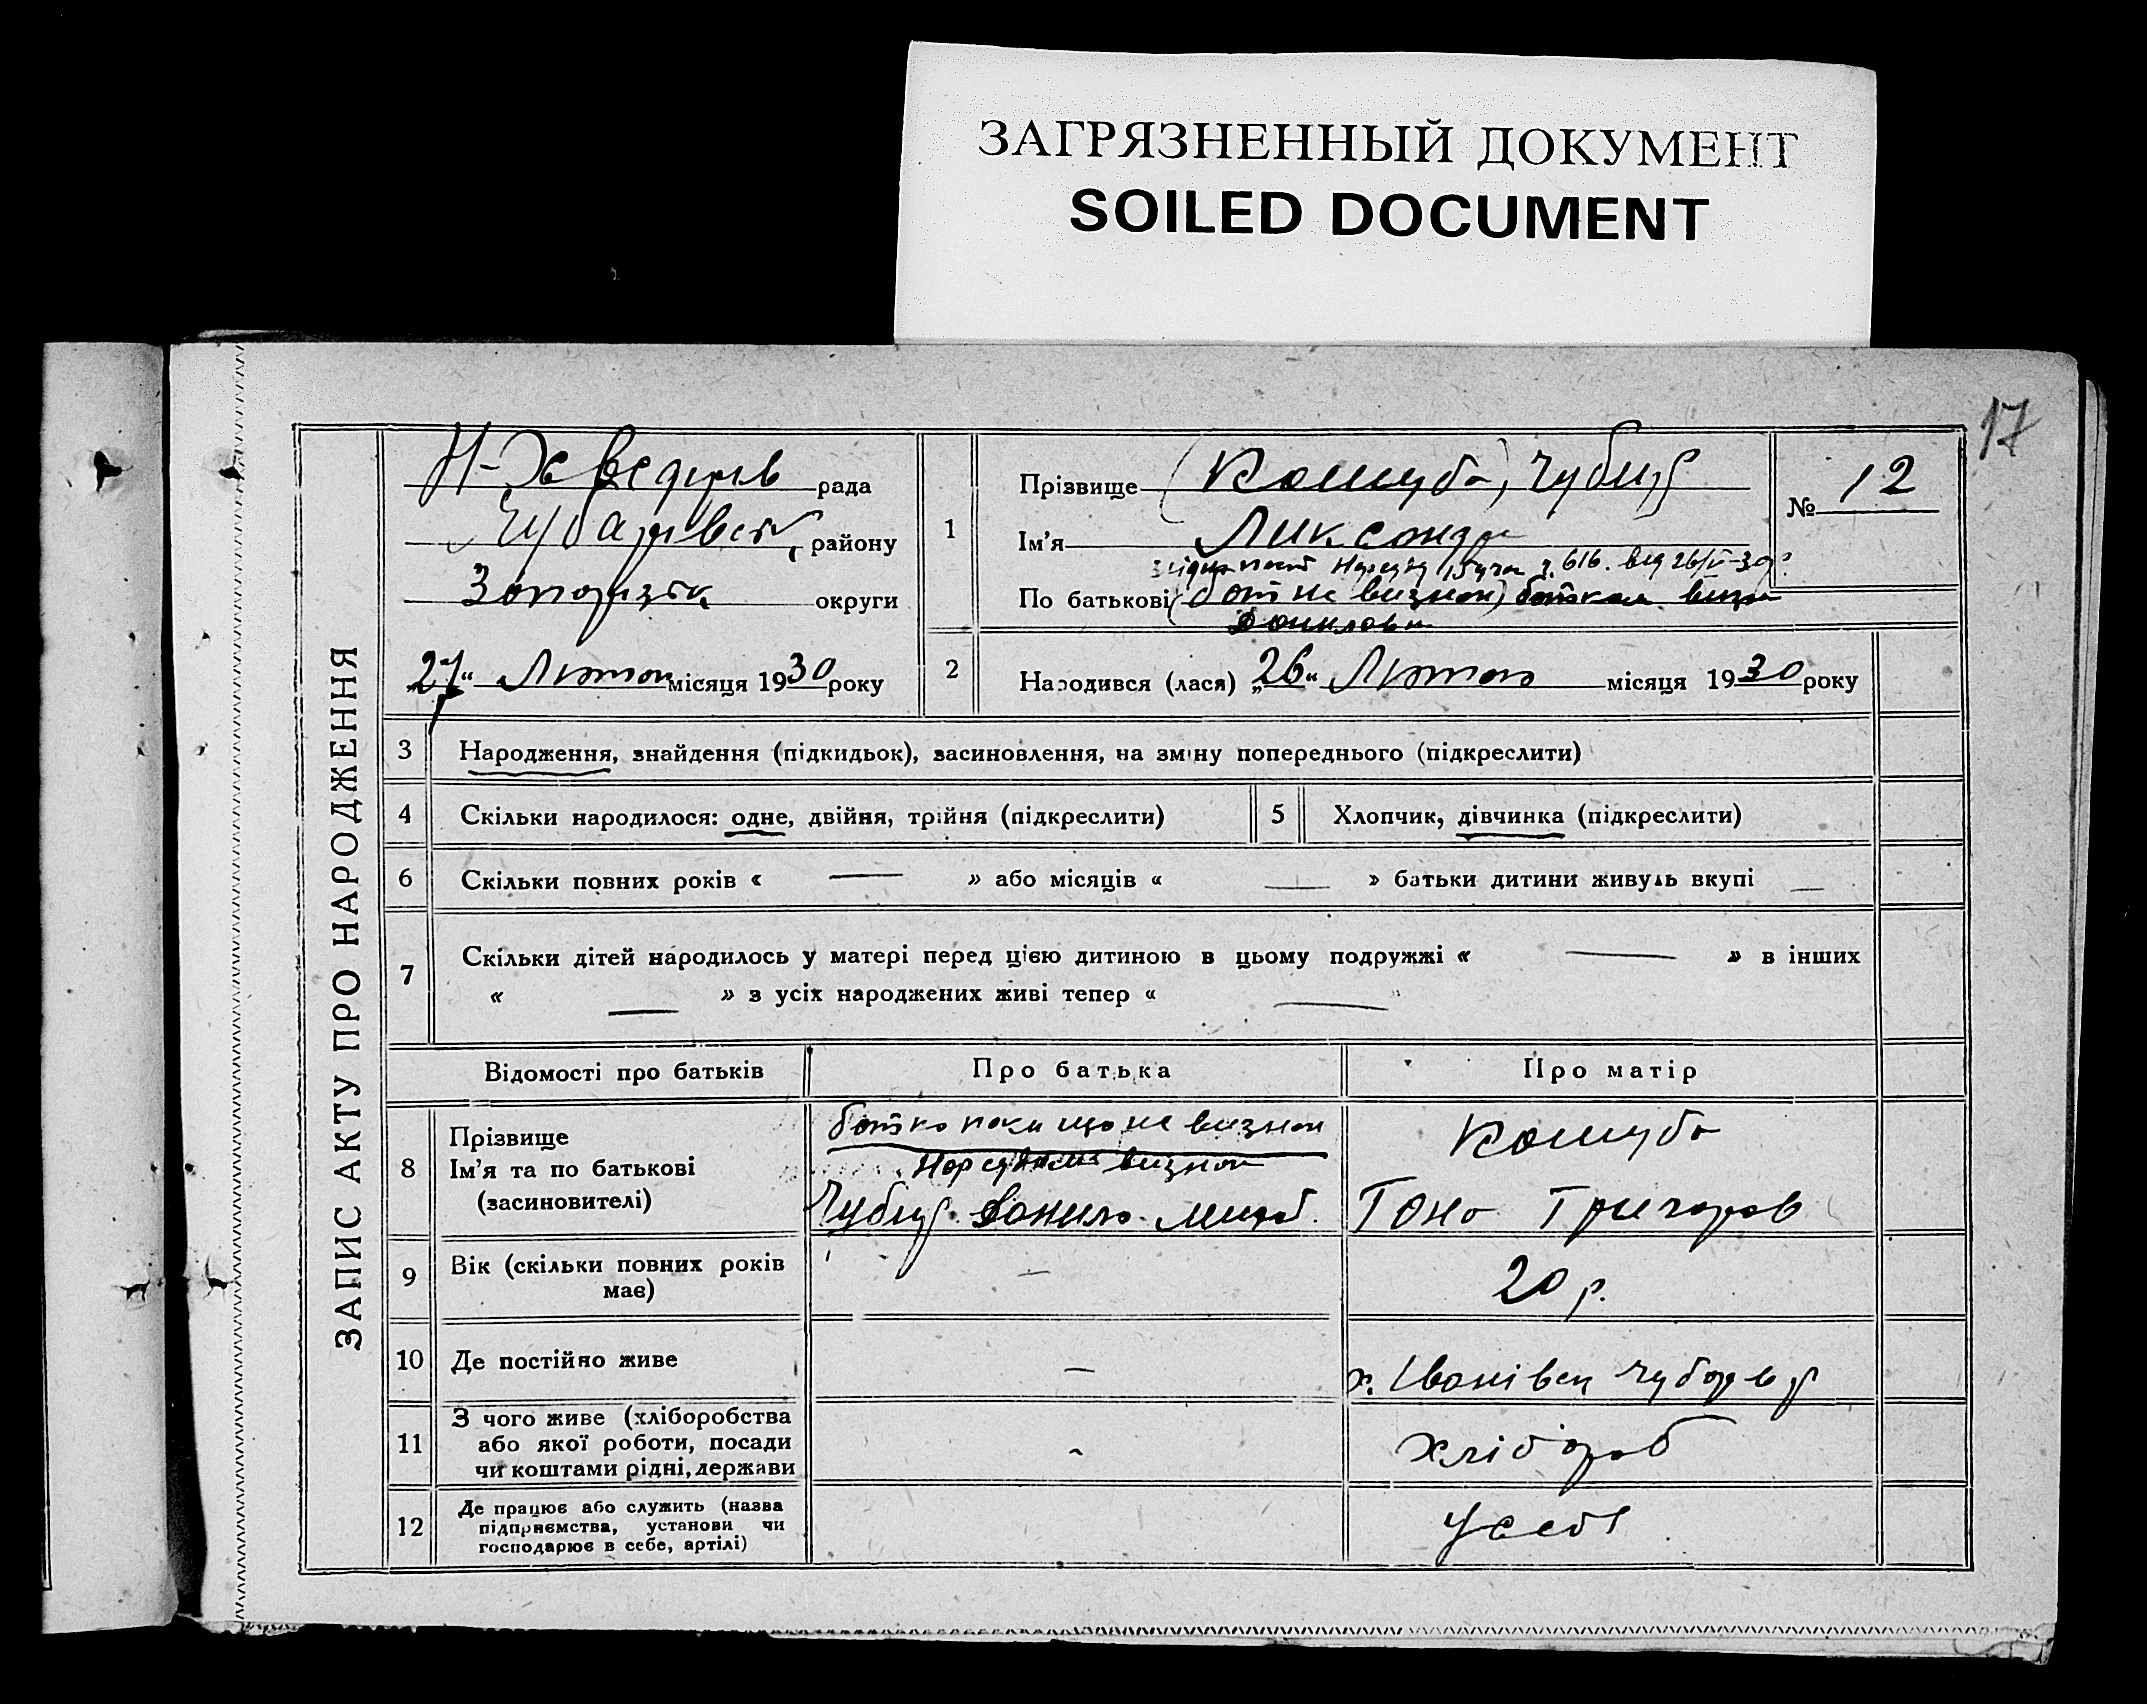 ЗАГРЯЗНЕННЫЙ ДОКУМЕНТ
SOILED DOCUMENT
17
ЗАПИС АКТУ ПРО НАРОДЖЕННЯ
Н-Хведорів рада
Чубарівськ району
Запорізьк округи
„27“ Лютого місяця 1930 року
1
Прізвище (Кошуба) Чубур
Ім'я Ликсандра
ч. 616. від 26/V-30р.
По батькові (батько не визнан)
Данилова
№ 12
2
Народився (лася) „26“ Лютого місяця 1930 року
3 Народження, знайдення (підкидьок), засиновлення, на зміну попереднього (підкреслити)
4 Скільки народилося: одне, двійня, трійня (підкреслити)
5 Хлопчик, дівчинка (підкреслити)
6 Скільки повних років « — » або місяців « — » батьки дитини живуть вкупі —
7 Скільки дітей народилось у матері перед цією дитиною в цьому подружжі « — » в інших
« — » з усіх народжених живі тепер « —
Відомості про батьків Про батька Про матір
8 Прізвище
Ім'я та по батькові
(засиновителі)
батько поки що не визнан
Нарсудом визнан
Чубур Данило
Кошуба
Гана Григоров
9 Вік (скільки повних років
має)
—
20 р.
10 Де постійно живе
—
х. Іванівка Чубар р
11 З чого живе (хліборобства
або якої роботи, посади
чи коштами рідні, держави
-
хлібороб
12 Де працює або служить (назва
підприємства, установи чи
господарює в себе, артілі)
У себе